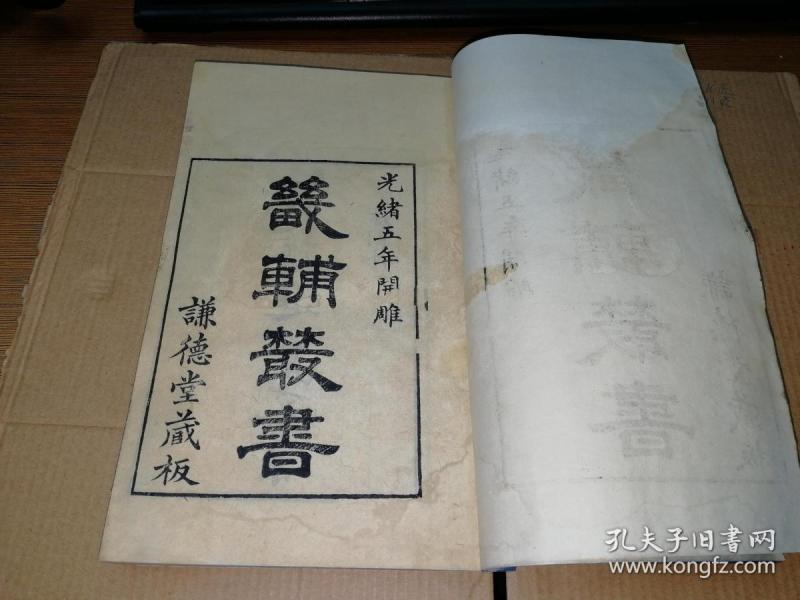 光緒五年開雕
畿輔叢書
謙德堂藏板
孔夫子旧书网
www.kongfz.com